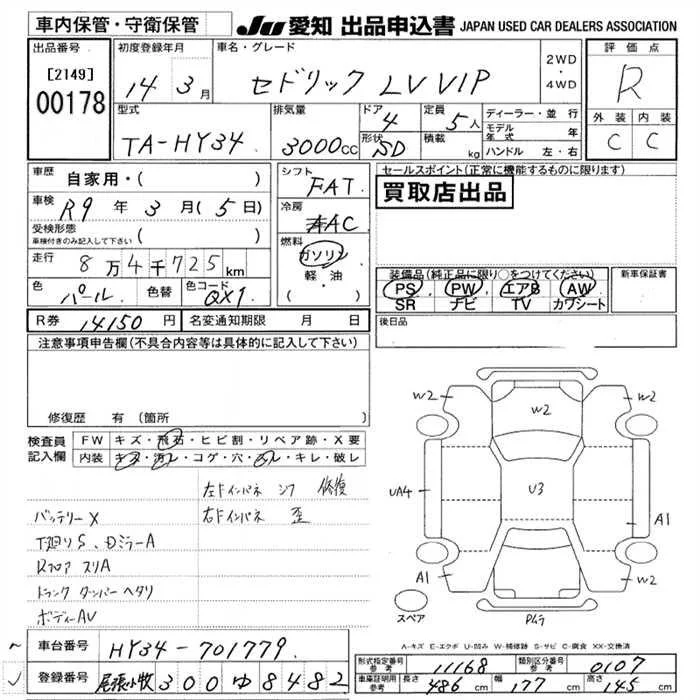 車内保管・守衛保管
JU 愛知 出品申込書 JAPAN USED CAR DEALERS ASSOCIATION
出品番号
[2149]
00178
初度登録年月
14年 3月
車名・グレード
セドリック LV VIP
2WD
・
4WD
評価点
R
外装 内装
C C
型式
TA-HY34
排気量
3000cc
ドア
4
形状
SD
定員
5人
積載
kg
ディーラー・並行
モデル年式 年
ハンドル 左・右
車歴 自家用・( )
車検 R9年 3月(5日)
受検形態
車検付きのみ記入して下さい ( )
走行 8万4千725km
色 パール 色替 色コード QX1
シフト
FAT
冷房
AC
燃料
ガソリン
軽・油
・
セールスポイント(正常に機能するものに限ります)
買取店出品
装備品(純正品に限り○をつけてください)
PS PW エアB AW
SR ナビ TV カワシート
新車保証書
後日品
R券 14150円 名変通知期限 月 日
注意事項申告欄(不具合内容等は具体的に記入して下さい)
修復歴 有(箇所 )
検査員記入欄
FW キズ・飛石・ヒビ割・リペア跡・X要
内装 キズ・汚レ・コゲ・穴・スレ・キレ・破レ
左Fインパネ シワ 修復
バッテリーX 右Fインパネ 歪
下廻りS、DミラーA
Rフロア スリA
トランク クンパー ヘタリ
ボディーAV
W2 W2 W2
UA4 U3 A1
A1 W2
スペア
A-キズ E-エクボ U-凹み W-補修跡 S-サビ C-腐食 XX-交換済
車台番号 HY34-701779
登録番号 尾張小牧 300 ゆ 8482
形式指定番号 参考 11168 類別区分番号 参考 0107
車庫証明用 参考 長さ 486cm 幅 177cm 高さ 145cm